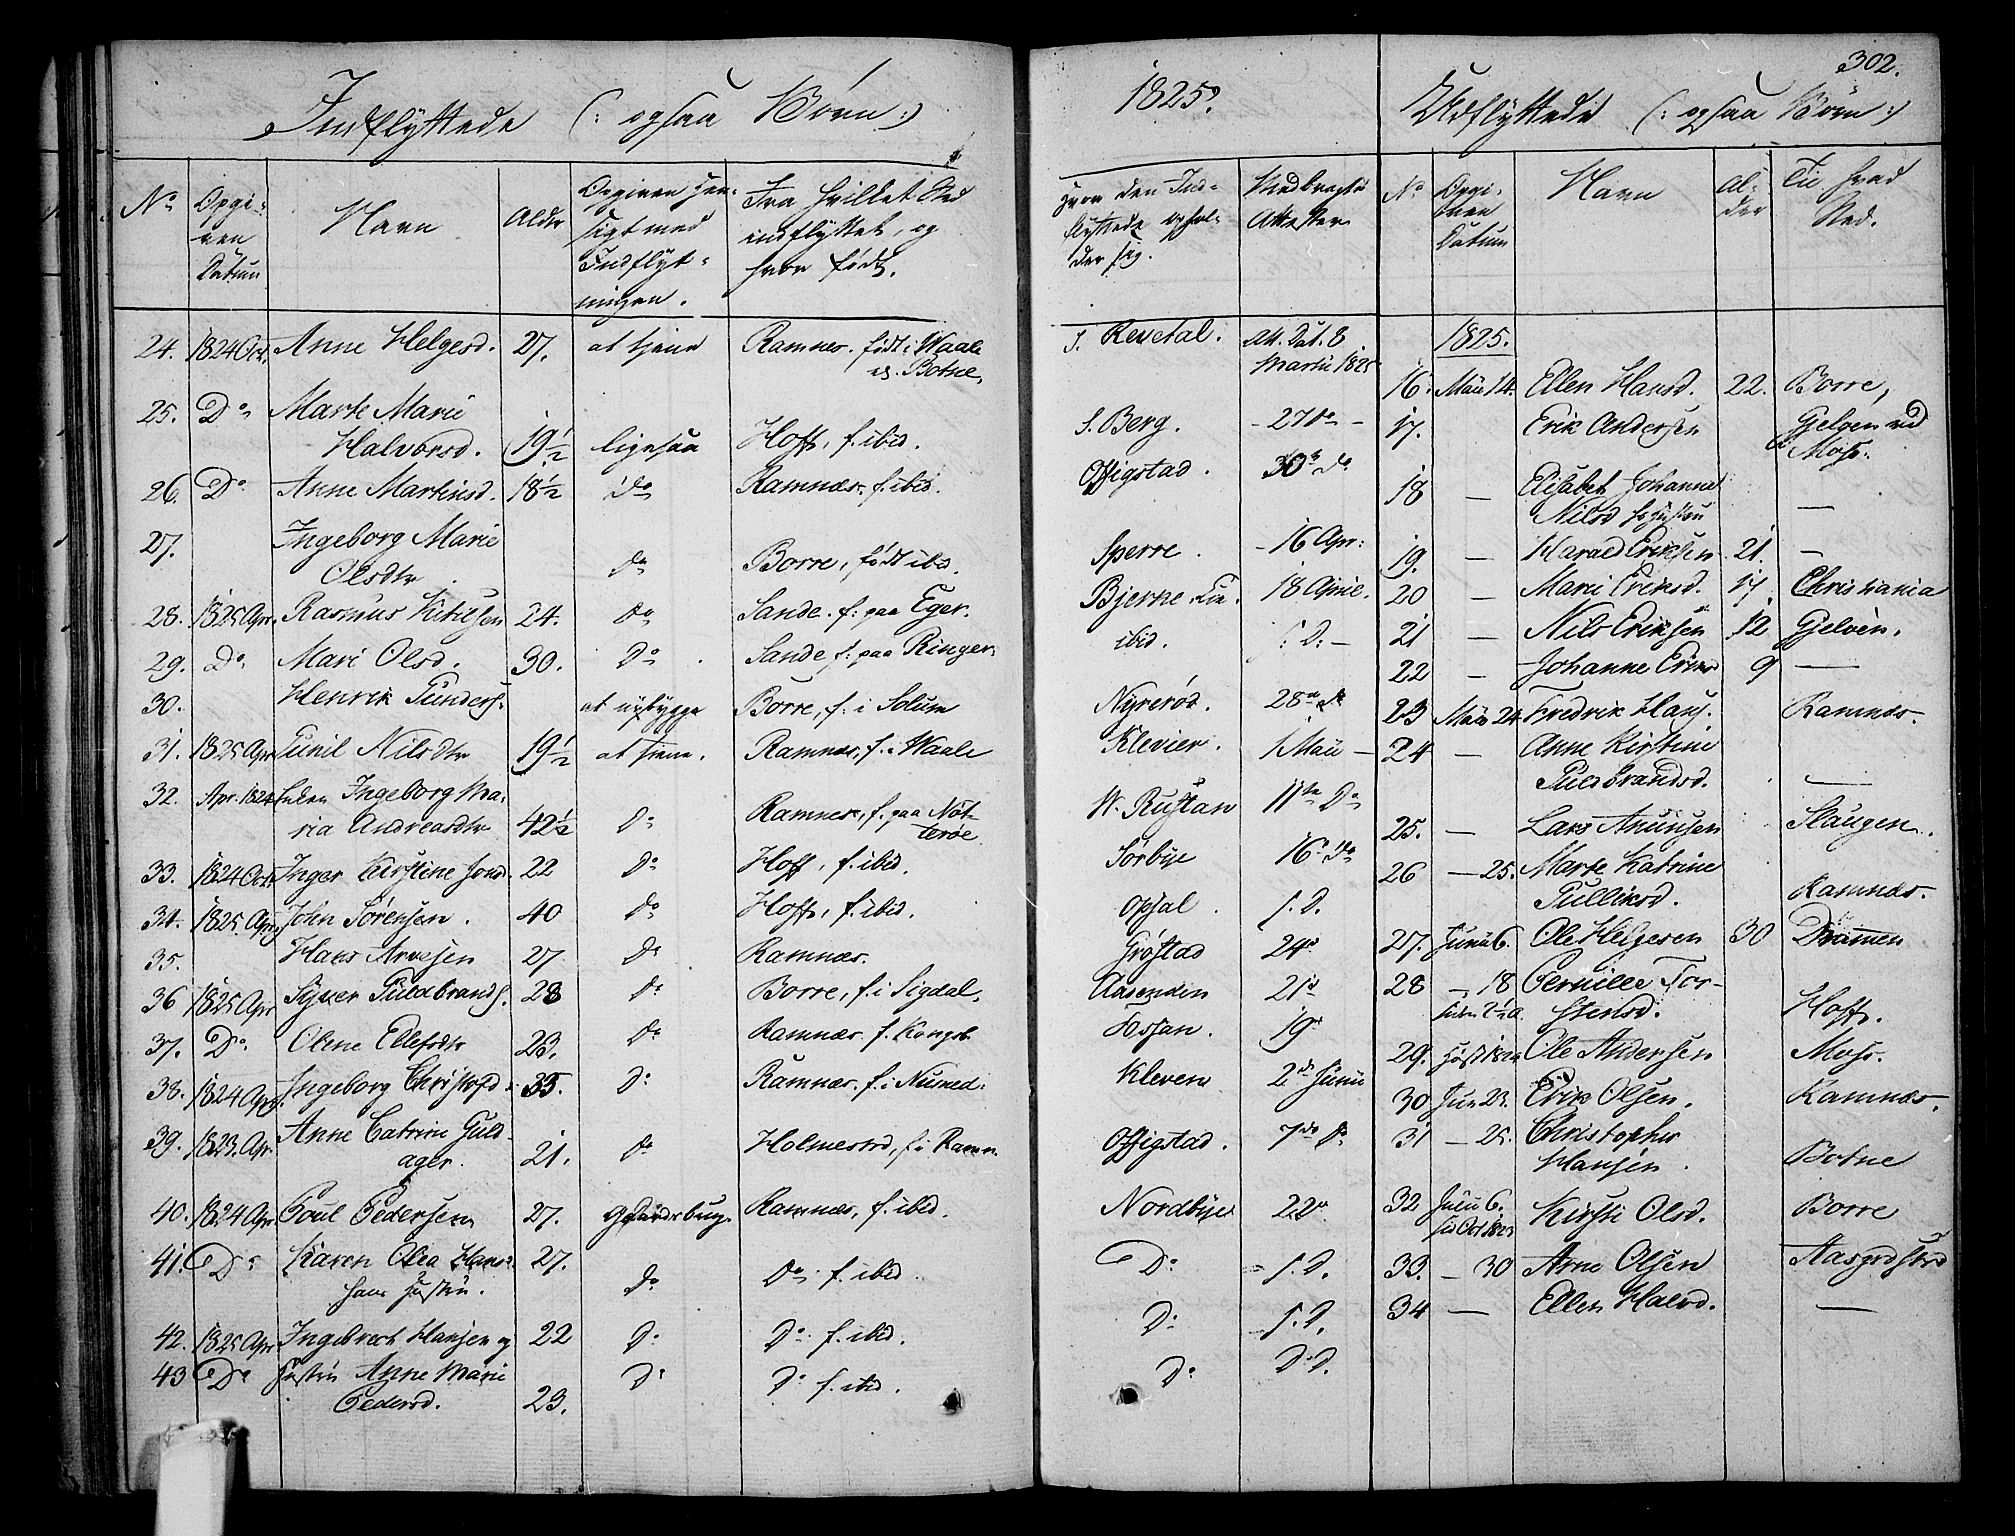 302.
Indflyttede (: ogsaa Børn :)
1825.
Udflyttede (: ogsaa Børn :)
No
Opgi-
ven
Datum
Navn
Alder
Opgiven Hen-
sigt med
Indflyt-
ningen.
Fra hvilket Sted
indflyttet, og
hvor født.
Hvor den Ind-
flyttede ophol-
der sig.
Medbragte
Attester
No
Opgi-
ven
Datum
Navn
Al-
der
Til hvad
Sted.
24. 1824 Oct. Anne Helgesd. 27. at tjene Ramnes. født i Waale
v. Botne.
S. Revetal. Att. Dat. 8
Martii 1825
25. Do Marte Marie
Halvorsd. 19½ ligesaa Hoff, f. ibid. S. Berg. - 27 do -
26. Do Anne Martinsd. 18½ do Ramnæs. f. ibid. Offigstad. 30 do
27. Ingeborg Marie
Olsdtr do Borre, født ibid. Sperre. - 16 Apr:
28. 1825 Apr. Rasmus Kitilsen 24. do Sande. f: paa Eger. Bjerke 18 April.
29. Do Mari Olsd. 30. Do Sande f: paa Ringer. ibid. f: D: -
30. Henrik Gunders. at nybygge Borre, f: i Solum Nyrerød. 28 do
31. 1825 Apr Gunil Nilsdtr 19½ at tjene. Ramnæs, f. i Waale Klevier. 1 Maii -
32. Apr. 1824 Enken Ingeborg Ma-
ria Andreasdtr 42½ Do Ramnes, f. paa Nøt-
terøe. W. Rustan 11te Do
33. 1824 Oct Inger Kirstine Jonsd. 22 Do Hoff, f. ibid. Sørbye 16 do
34. 1825 Apr John Sørensen. 40 Do Hoff, f. ibid. Opsal. f. D.
35. Hans Arvesen 27 Do Ramnæs. Grøstad 24
36 1825 Apr Syver Guldbrands. 28 Do Borre, f. i Sigdal. Aasenden 21
37. Do Oline Ellefsdtr 23. Do Ramnæs. f. Kongsb. Fossan. 19
38. 1824 Apr. Ingeborg Christofd. 35. Do Ramnæs. f. i Numed: Kleven 2 Junii
39. 1823. Apr Anne Catrine Guld-
ager. 21. do Holmestrd, f. i Ramn. Offigstad. 7 do
40. 1824 Apr Poul Pedersen 27. Gaardsbrug. Ramnæs, f. ibid. Nordbye 22
41. Do Karen Olea Hans
hans Hustru. 27. do Do f. ibid. Do f. D.
42. 1825 Apr Ingebrect Hansen og 22 Do Do f. ibid. Do f. D.
43 Do Hustru Anne Marie
Pedersd. 23. Do Do f. ibid. Do D. D.
1825.
16. Maii 14. Ellen Hansd. 22. Borre,
17. Erik Andersen Gjelgen ved
Moss.
18 — Elisabet Johanne
Nilsd hs Hustru —
19. — Harald Eriksen 21. —
20 — Mari Eriksd. 17. Christiania
21 — Nils Eriksen 12 Gjelven.
22 — Johanne Eriksd 9 —
23 Maii 24 Fredrik Hans. Ramnæs.
24 — Anne Kirstine
Guldbrandsd. —
25. — Lars Amunsen Slaugen.
26 — 25. Marte Katrine
Gulliksd. Ramnæs.
27. Junii 6. Ole Helgesen 30 Dramen
28 — 18 Pernille Tor-
stensd. Hoff.
29. Høst 1824 Ole Andersen Moss.
30 Jun 23. Erik Olsen. Ramnæs.
31 — 25. Christopher
Hansen. Botne
32 Julii 6. Kirsti Olsd. Borre
33. — 30 Arne Olsen Aasgrdstrd
34 — Ellen Halvd. —